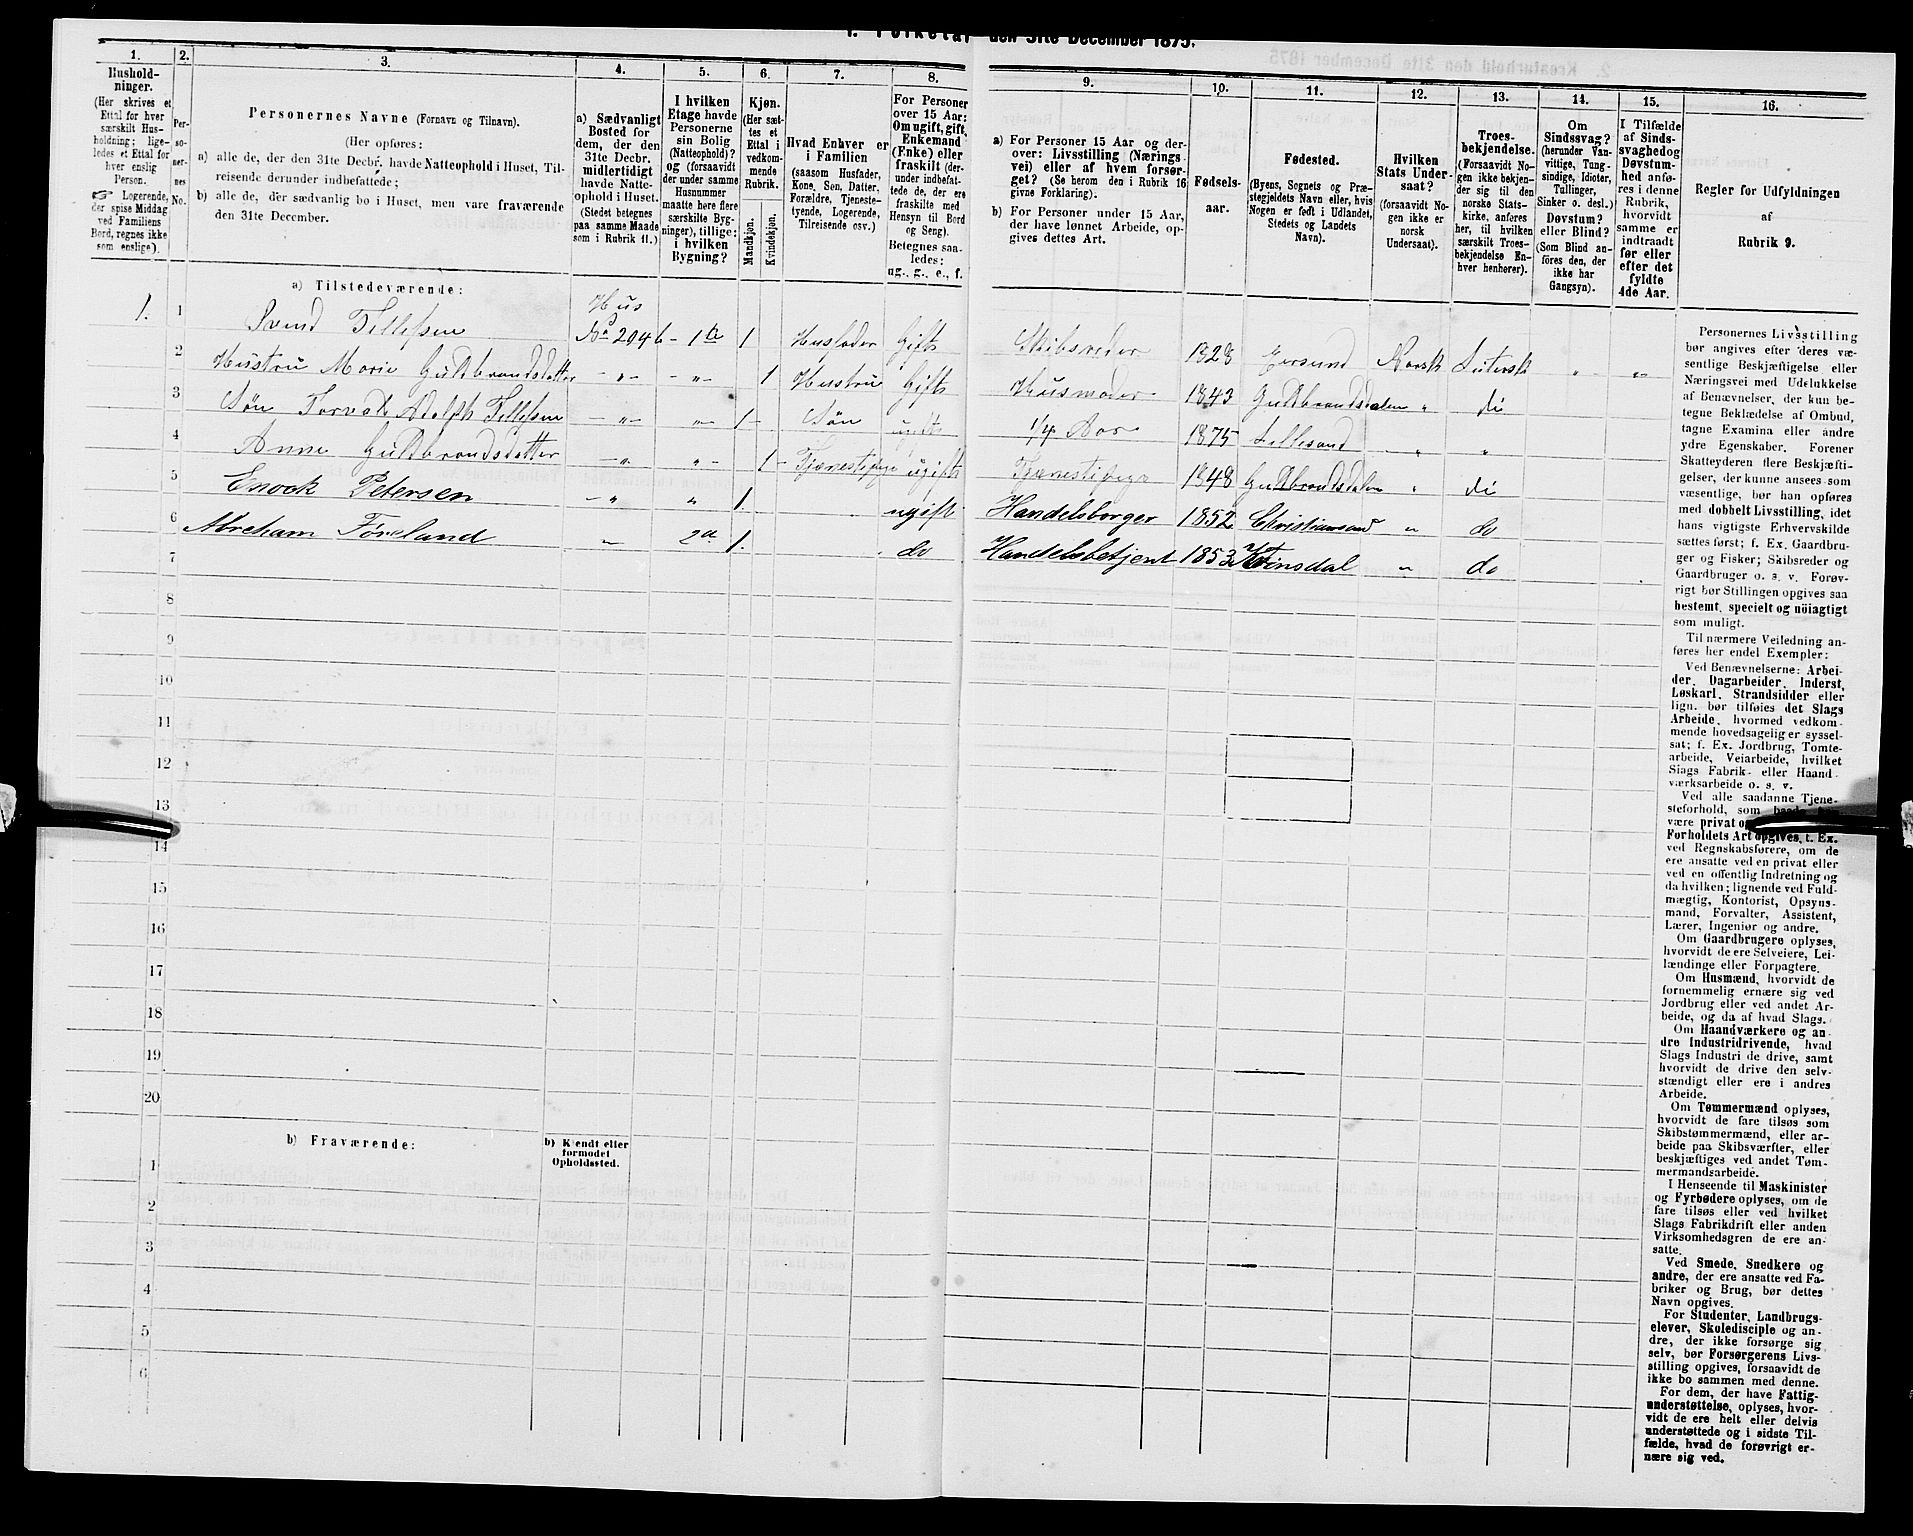 1. Folketal den 31te December 1875.
1.
Hushold-
ninger.
(Her skrives et
Ettal for hver
særskilt Hus-
holdning; lige-
ledes et Ettal for
hver enslig
Person.
☞ Logerende,
der spise Middag
ved Familiens
Bord, regnes ikke
som enslige).
2.
Per-
so-
ner-
nes
No.
3.
Personernes Navne (Fornavn og Tilnavn).
(Her opføres:
a) alle de, der den 31te Decbr. havde Natteophold i Huset, Til-
reisende derunder indbefattede;
b) alle de, der sædvanlig bo i Huset, men vare fraværende
den 31te December.
4.
a) Sædvanligt
Bosted for
dem, der den
31te Decbr.
midlertidigt
havde Natte-
ophold i Huset.
(Stedet betegnes
paa samme Maade
som i Rubrik 11.)
5.
I hvilken
Etage havde
Personerne
sin Bolig
(Natteophold)?
og (forsaavidt
der under samme
Husnummer
maatte here flere
særskilte Byg-
ninger), tillige:
i hvilken
Bygning?
6.
Kjøn.
(Her sæt-
tes et
Ettal i
vedkom-
mende
Rubrik.
Mandkjøn.
Kvindekjøn.
7.
Hvad Enhver er
i Familien
(saasom Husfader,
Kone, Søn, Datter,
Forældre, Tjeneste-
tyende, Logerende,
Tilreisende osv.)
8.
For Personer
over 15 Aar:
Om ugift, gift,
Enkemand
(Enke) eller
fraskilt (der-
under indbefat-
tede de, der ere
fraskilte med
Hensyn til Bord
og Seng).
Betegnes saa-
ledes:
ug., g., e., f.
9.
a) For Personer 15 Aar og der-
over: Livsstilling (Nærings-
vei) eller af hvem forsør-
get? (Se herom den i Rubrik 16
givne Forklaring).
b) For Personer under 15 Aar,
der have lønnet Arbeide, op-
gives dettes Art.
10.
Fødsels-
aar.
11.
Fødested.
(Byens, Sognets og Præ-
stegjeldets Navn eller, hvis
Nogen er født i Udlandet,
Stedets og Landets
Navn).
12.
Hvilken
Stats Under-
saat?
(forsaavidt No-
gen ikke er
norsk
Undersaat).
13.
Troes-
bekjendelse.
(Forsaavidt No-
gen ikke bekjen-
der sig til den
norske Stats-
kirke, anføres
her, til hvilken
særskilt Troes-
bekjendelse En-
hver henhører).
14.
Om
Sindssvag?
(herunder Van-
vittige, Tung-
sindige, Idioter,
Tullinger,
Sinker o. desl.)
Døvstum?
eller Blind?
(Som Blind an-
føres den, der
ikke har
Gangsyn).
15.
I Tilfælde
af Sinds-
svaghed og
Døvstum-
hed anfø-
res i denne
Rubrik,
hvorvidt
samme er
indtraadt
før eller
efter det
fyldte
4de Aar.
16.
Regler for Udfyldningen
af
Rubrik 9.
a) Tilstedeværende:
Hus
1. 1 Svend Tellefsen No 294 b - 1te 1 Husfader Gift Skibsreder 1828 Egersund Norsk Lutersk " "
2 Hustru Marie Guldbrandsdatter - " - - " - 1 Hustru Gift Husmoder 1843 Guldbrandsdalen " di
3 Søn Torvald Adolph Tellefsen - " - - " - 1 - Søn ugift 1/4 Aar 1875 Lillesand " "
4 Anne Guldbrandsdatter - " - " - 1 - Tjenestepige ugift Tjenestepige 1848 Guldbrandsdalen " di
5 Enock Petersen - " " 1. ugift Handelsborger 1852 Christiansand " do
6 Abraham Føreland " 2d 1. do Handelsbetjent 1853 Kvinsdal " do
7
8
9
10
11
12
13
14
15
16
17
18
19
20
b) Fraværende:
b) Kjendt eller
formodet
Opholdssted.
1
2
3
4
5
6
Personernes Livsstilling
bør angives efter deres væ-
sentlige Beskjæftigelse eller
Næringsvei med Udelukkelse
af Benævnelser, der kun be-
tegne Beklædelse af Ombud,
tagne Examina eller andre
ydre Egenskaber. Forener
Skatteyderen flere Beskjæfti-
gelser, der kunne ansees som
væsentlige, bør han opføres
med dobbelt Livsstilling, idet
hans vigtigste Erhvervskilde
sættes først; f. Ex. Gaardbru-
ger og Fisker; Skibsreder og
Gaardbruger o. s. v. Forøv-
rigt bør Stillingen opgives saa
bestemt, specielt og nöiagtigt
som muligt.
Til nærmere Veiledning an-
føres her endel Exempler:
Ved Benævnelserne: Arbei-
der, Dagarbeider, Inderst,
Løskarl, Strandsidder eller
lign. bør tilføies det Slags
Arbeide, hvormed vedkom-
mende hovedsagelig er syssel-
sat; f. Ex. Jordbrug, Tomte-
arbeide, Veiarbeide, hvilket
Slags Fabrik- eller Haand-
værksarbeide o. s. v.
Ved alle saadanne Tjene-
steforhold, som
være privat
Forholdets Art opgives, t. Ex.
ved Regnskabsførere, om de
ere ansatte ved en privat eller
ved en offentlig Indretning og
da hvilken; lignende ved Fuld-
mægtig, Kontorist, Opsyns-
mand, Forvalter, Assistent,
Lærer, Ingeniør og andre.
Om Gaardbrugere oplyses,
hvorvidt de ere Selveiere, Lei-
lændinge eller Forpagtere.
Om Husmænd, hvorvidt de
fornemmelig ernære sig ved
Jordbrug eller ved andet Ar-
beide, og da af hvad Slags.
Om Haandværkere og an-
dre Industridrivende, hvad
Slags Industri de drive, samt
hvorvidt de drive den selv-
stændigt eller ere i andres
Arbeide.
Om Tømmermænd oplyses,
hvorvidt de fare tilsøs som
Skibstømmermænd, eller ar-
beide paa Skibsværfter, eller
beskjæftiges ved andet Tøm-
mermandsarbeide.
I Henseende til Maskinister
og Fyrbødere oplyses, om de
fare tilsøs eller ved hvilket
Slags Fabrikdrift eller anden
Virksomhedsgren de ere an-
satte.
Ved Smede, Snedkere og
andre, der ere ansatte ved Fa-
briker og Brug, bør dettes
Navn opgives.
For Studenter, Landbrugs-
elever, Skoledisciple og an-
dre, der ikke forsørge sig
selv, bør Forsørgerens Livs-
stilling opgives, forsaavidt de
ikke bo sammen med denne.
For dem, der have Fattig-
understøttelse, oplyses, hvor-
vidt de ere helt eller delvis
understøttede og i sidste Til-
fælde, hvad de forøvrigt er-
nære sig ved.